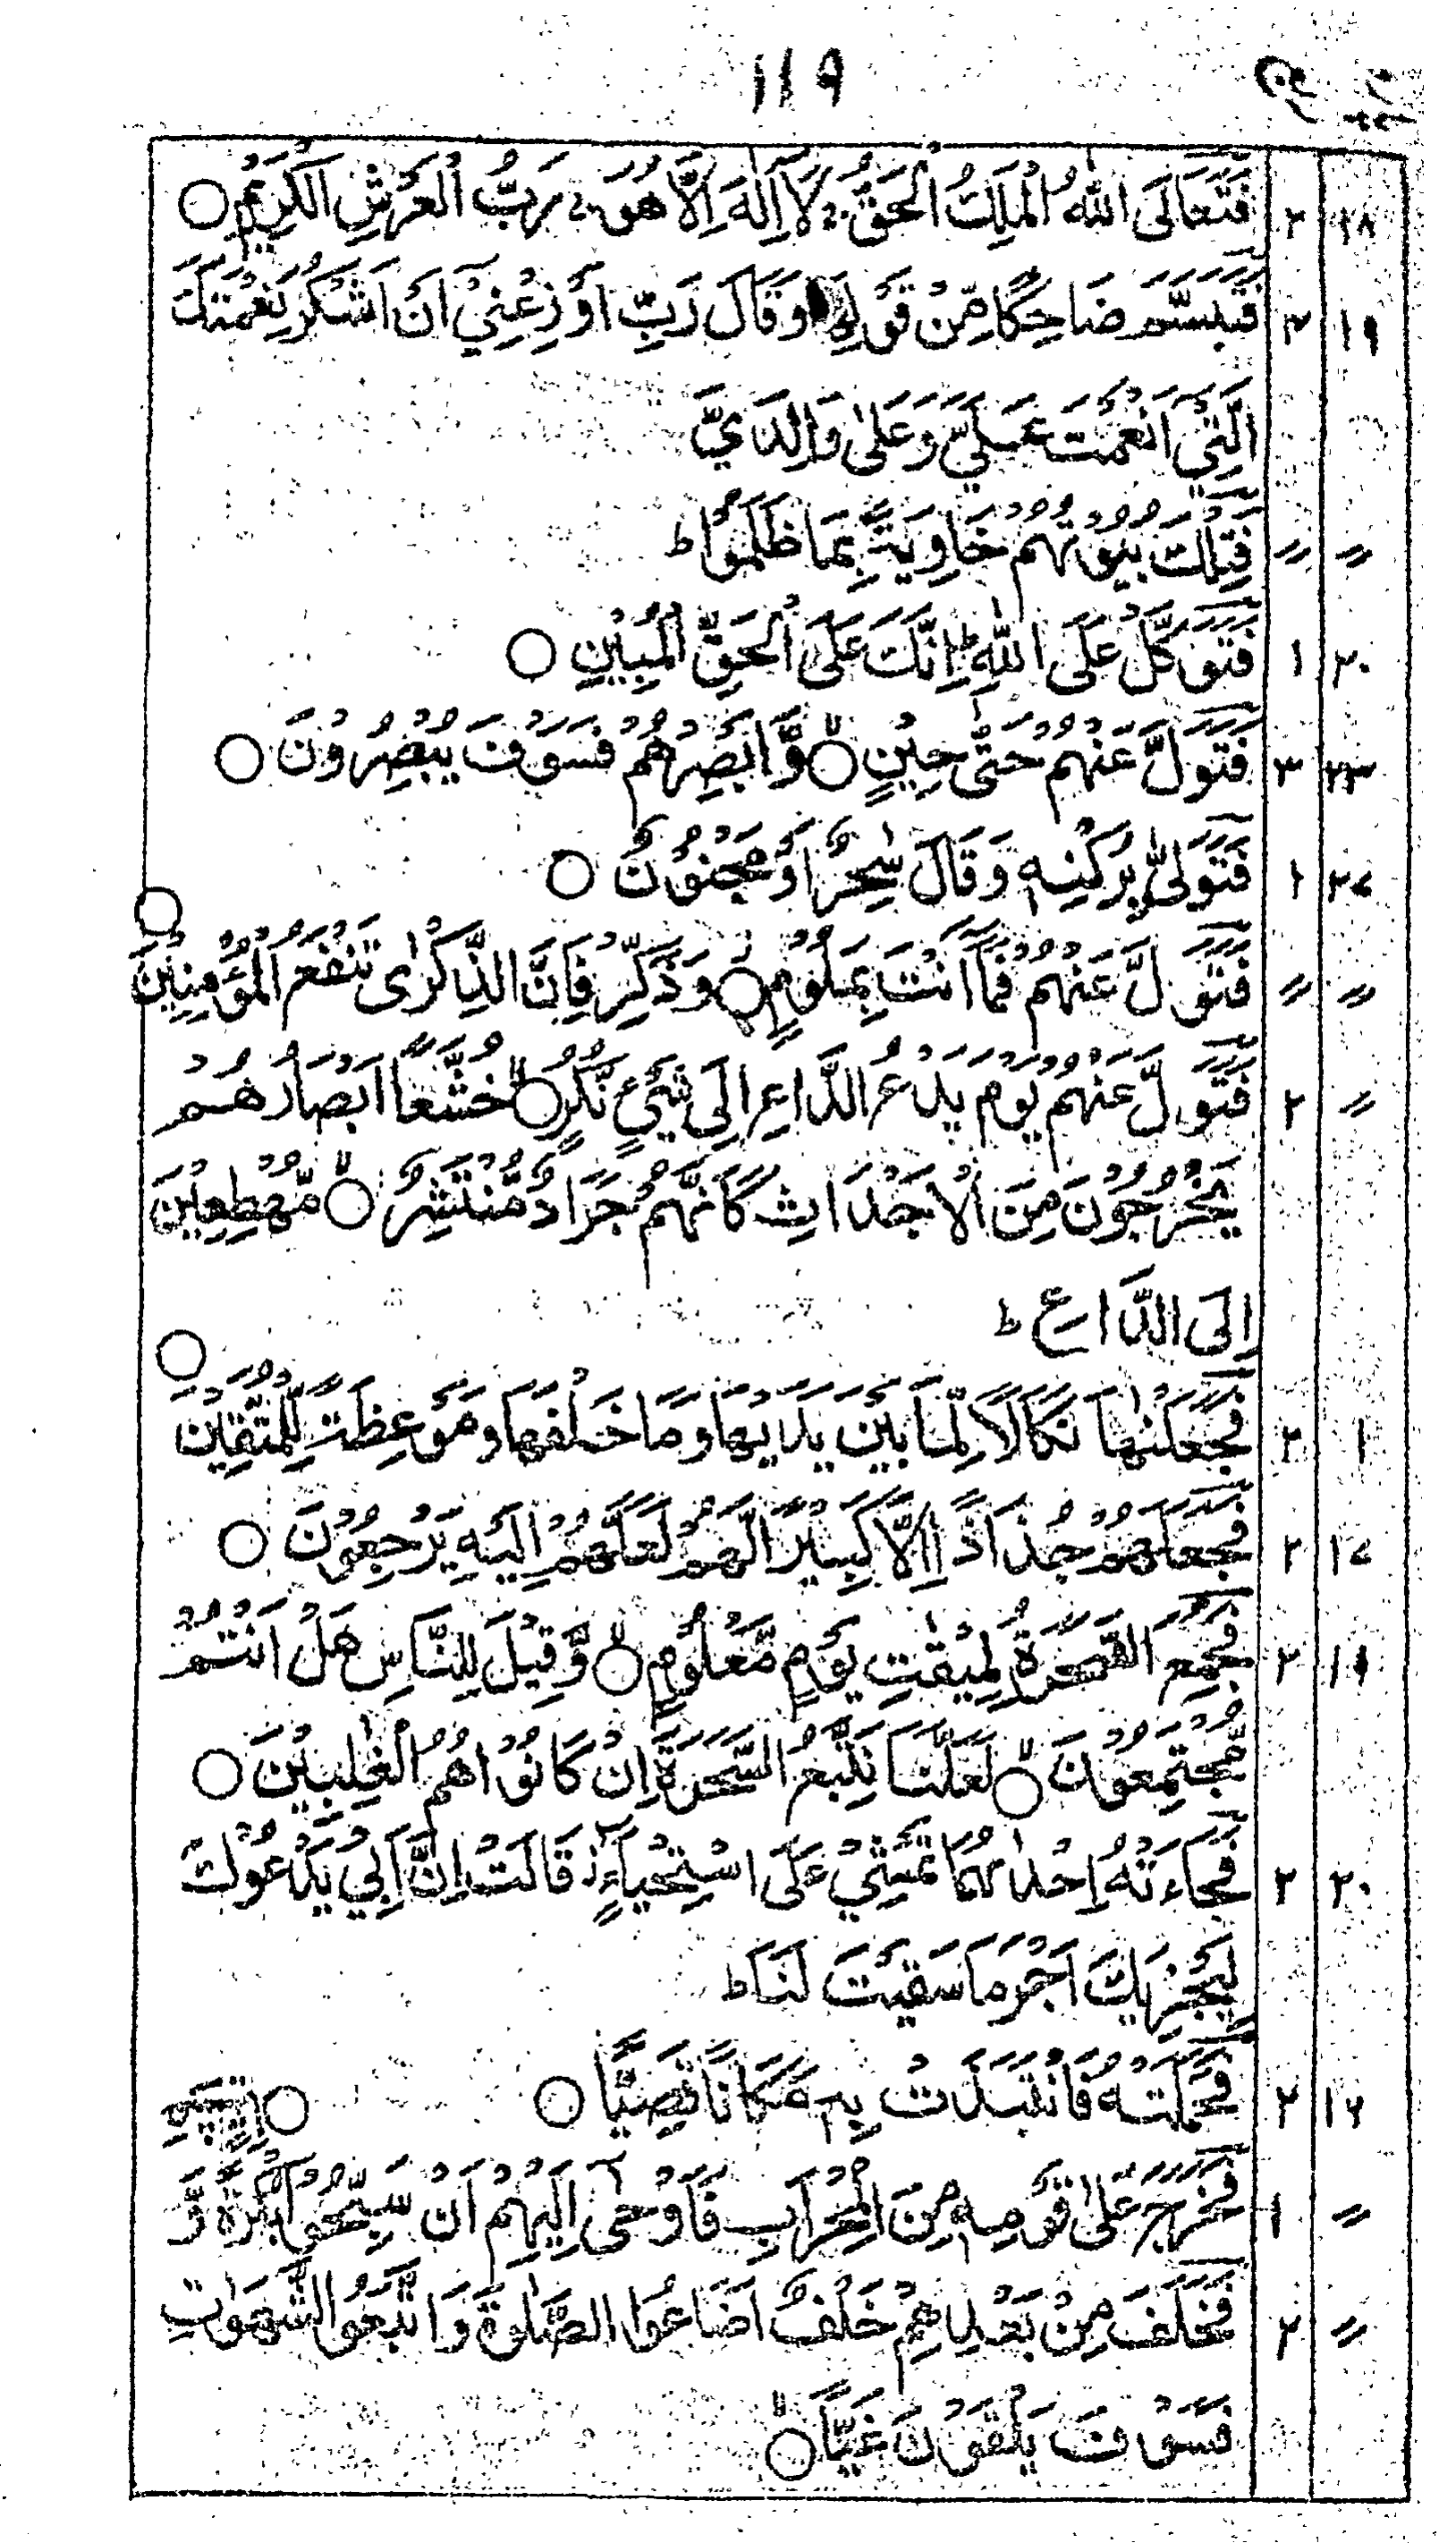 ۱۱۹
۱۸ ۲ فَتَعَالَى اللّٰهُ الْمَلِكُ الْحَقُّ ۚ لَا اِلٰهَ اِلَّا هُوَ ۚ رَبُّ الْعَرْشِ الْكَرِيْمِ ○
۱۹ ۲ فَتَبَسَّمَ ضَاحِكًا مِّنْ قَوْلِهَا وَقَالَ رَبِّ اَوْزِعْنِيْ اَنْ اَشْكُرَ نِعْمَتَكَ
الَّتِيْ اَنْعَمْتَ عَلَيَّ وَعَلٰى وَالِدَيَّ
〃 〃 فَتِلْكَ بُيُوْتُهُمْ خَاوِيَةً بِمَا ظَلَمُوْا ط
۲۰ ۱ فَتَوَكَّلْ عَلَى اللّٰهِ ط اِنَّكَ عَلَى الْحَقِّ الْمُبِيْنِ ○
۲۳ ۳ فَتَوَلَّ عَنْهُمْ حَتّٰى حِيْنٍ ○ وَّاَبْصِرْهُمْ فَسَوْفَ يُبْصِرُوْنَ ○
۲۷ ۱ فَتَوَلّٰى بِرُكْنِهٖ وَقَالَ سٰحِرٌ اَوْ مَجْنُوْنٌ ○
〃 〃 فَتَوَلَّ عَنْهُمْ فَمَا اَنْتَ بِمَلُوْمٍ ○ وَذَكِّرْ فَاِنَّ الذِّكْرٰى تَنْفَعُ الْمُؤْمِنِيْنَ ○
〃 ۲ فَتَوَلَّ عَنْهُمْ يَوْمَ يَدْعُ الدَّاعِ اِلٰى شَيْءٍ نُّكُرٍ ○ خُشَّعًا اَبْصَارُهُمْ
يَخْرُجُوْنَ مِنَ الْاَجْدَاثِ كَاَنَّهُمْ جَرَادٌ مُّنْتَشِرٌ ○ مُّهْطِعِيْنَ
اِلَى الدَّاعِ ط
۱ ۲ فَجَعَلْنٰهَا نَكَالًا لِّمَا بَيْنَ يَدَيْهَا وَمَا خَلْفَهَا وَمَوْعِظَةً لِّلْمُتَّقِيْنَ ○
۱۷ ۲ فَجَعَلَهُمْ جُذَاذًا اِلَّا كَبِيْرًا لَّهُمْ لَعَلَّهُمْ اِلَيْهِ يَرْجِعُوْنَ ○
۱۹ ۲ فَجُمِعَ السَّحَرَةُ لِمِيْقٰتِ يَوْمٍ مَّعْلُوْمٍ ○ وَّقِيْلَ لِلنَّاسِ هَلْ اَنْتُمْ
مُّجْتَمِعُوْنَ ○ لَعَلَّنَا نَتَّبِعُ السَّحَرَةَ اِنْ كَانُوْا هُمُ الْغٰلِبِيْنَ ○
۲۰ ۲ فَجَاءَتْهُ اِحْدٰىهُمَا تَمْشِيْ عَلَى اسْتِحْيَاءٍ ز قَالَتْ اِنَّ اَبِيْ يَدْعُوْكَ
لِيَجْزِيَكَ اَجْرَ مَا سَقَيْتَ لَنَا ط
۱۶ ۲ فَحَمَلَتْهُ فَانْتَبَذَتْ بِهٖ مَكَانًا قَصِيًّا ○ ○
〃 ۱ فَخَرَجَ عَلٰى قَوْمِهٖ مِنَ الْمِحْرَابِ فَاَوْحٰى اِلَيْهِمْ اَنْ سَبِّحُوْا بُكْرَةً وَّ عَشِيًّا
〃 ۲ فَخَلَفَ مِنْ بَعْدِهِمْ خَلْفٌ اَضَاعُوا الصَّلٰوةَ وَاتَّبَعُوا الشَّهَوٰتِ
فَسَوْفَ يَلْقَوْنَ غَيًّا ○